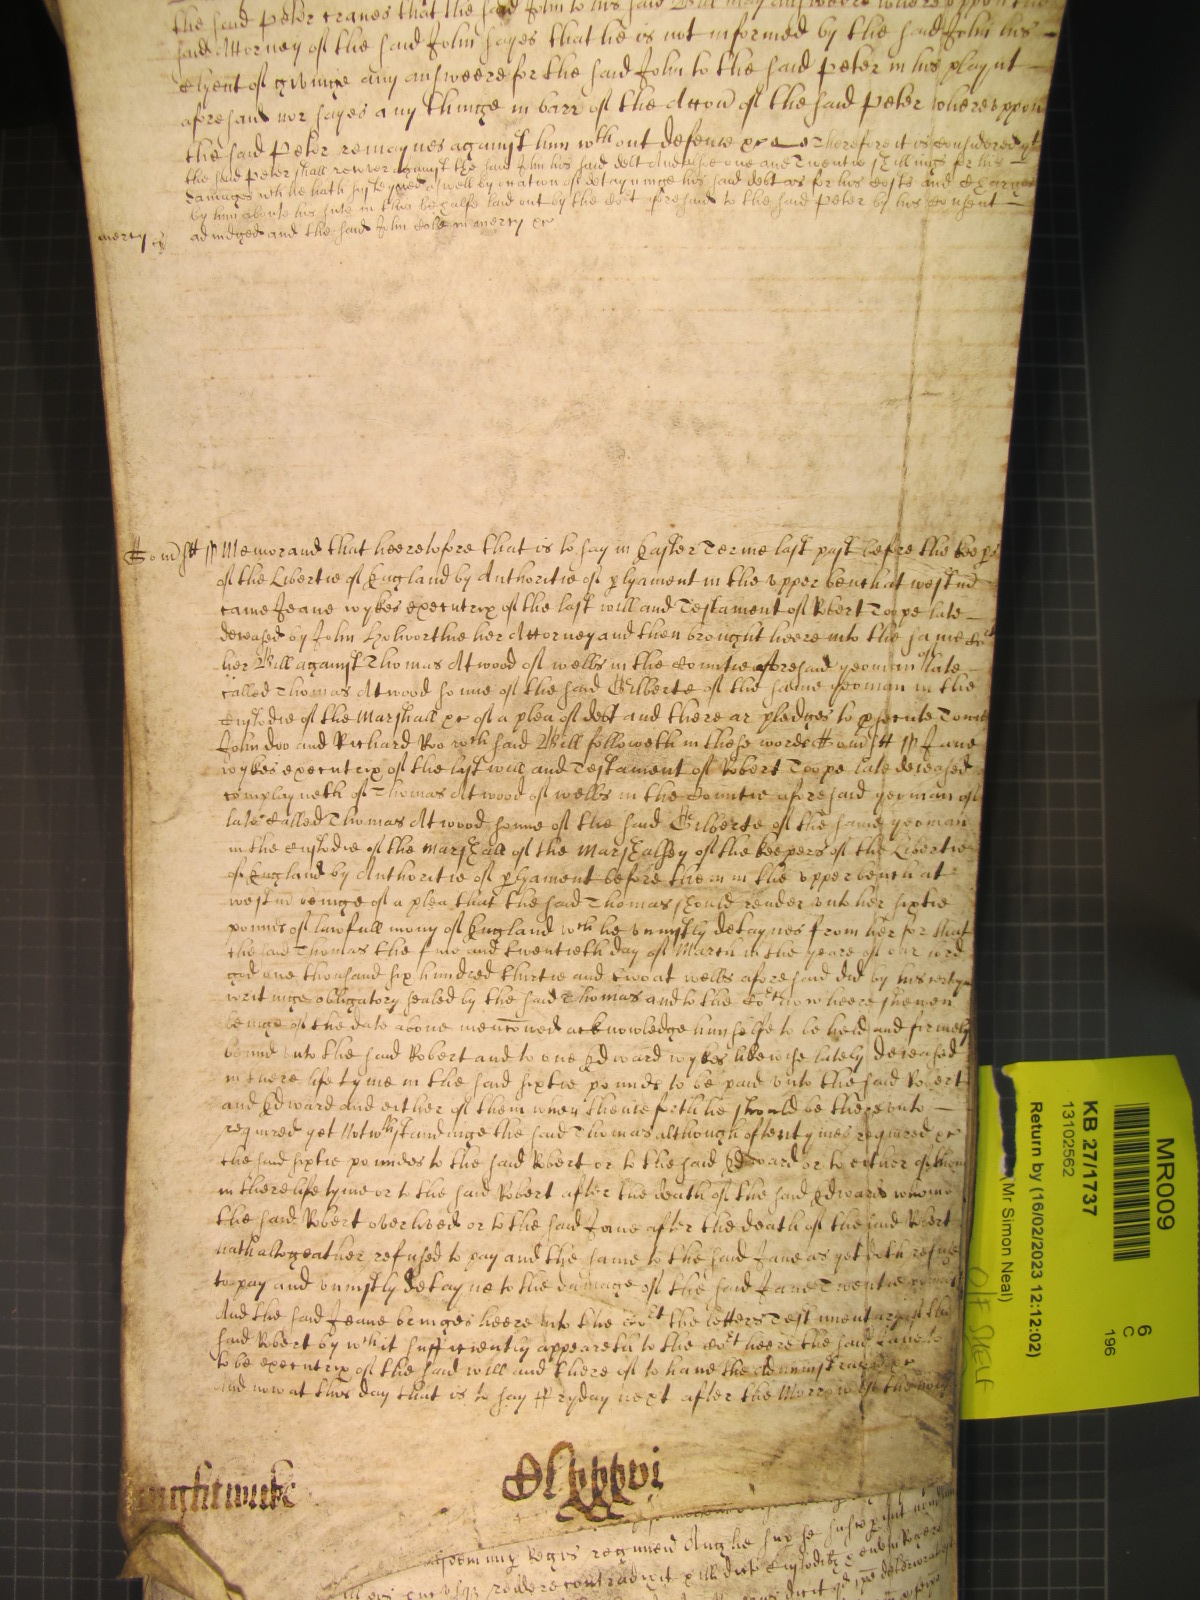 the said Peter craves that the said John to his said Bill may answeere whereuppon the
said Attorney of the said John sayes that he is not informed by the said John his
clyent of givinge any answeere for the said John to the said Peter in his playnt
aforesaid nor sayes any thinge in barr of the Accon of the said Peter whereuppon
the said Peter remaynes against him wthout defense &c Therefore it is considered yt
the said Peter shall recover against the said John his said debt And alsoe one and Twentie shillings for his
damages wch he hath susteyned aswell by occation of detayninge his said debt as for his costs and charges
by him aboute his sute in this behalfe laid out by the Cort aforesaid to the said Peter by his consent
mercy &c adiudged and the said John Cole in mercy &c
Som sst Memorand that heeretofore that is to say in Easter Terme last past before the keepers
of the Libertie of England by Authoritie of plyament in the upper bench at westm
came Jeane wykes executrix of the last will and Testament of Robert Toope late
deceased by John Holworthie her Attorney and then brought heere into the same Cort
her Bill against Thomas Atwood of wells in the Countie aforesaid yeoman of late
called Thomas Atwood sonne of the said Gilberte of the same yeoman in the
Custodie of the Marshall &c of a plea of debt and there ar pledges to psecute
John doo and Richard Roo wch said Bill followeth in these words Som sst Jane
wykes executrix of the last will and Testament of Robert Toope late deceased
complayneth of Thomas Atwood of wells in the Countie aforesaid yeoman of
late called Thomas Atwood sonne of the said Gilberte of the same yeoman
in the custodie of the Marshall of the Marshalsey of the keepers of the Libertie
of England by Authoritie of plyament before them in the upper bench at
westm beinge of a plea that the said Thomas should render unto her sixtie
pounds of lawfull mony of England wch he uniustly detaynes from her for that
the said Thomas the five and twentieth day of March in the yeare of our lord
god one thousand six hundred thirtie and two at wells aforesaid did by his certayn
writinge obligatory sealed by the said Thomas and to the Cort now heere shewen
beinge of the date above mencioned acknowledge himselfe to be held and firmely
bound unto the said Robert and to one Edward wykes likewise lately deceased
in there life tyme in the said sixtie pounds to be paid unto the said Robert
and Edward and either of them when thenceforth he should be thereunto
required yet Notwthstandinge the said Thomas although oftentymes required &c
the said sixtie poundes to the said Robert or to the said Edward or to either of them
in there life tyme or to the said Robert after the death of the said Edward whome
the said Robert overlived or to the said Jane after the death of the said Robert
hath altogeather refused to pay and the same to the said Jane as yet doth refuse
to pay and uniustly detayne to the damage of the said Jane Twentie pounds
And the said Jeane bringes heere into the Cort the letters Testimentary of the
said Robert by wch it sufficiently appeareth to the Cort heere the said Jane
to be executrix of the said will and there of to have the administracon &c
And now at this day that is to say ffryday next after the Morrow of the holy
Clxxxvi
MR009
KB 27/1737
13102562
Return by (16/02/2023 12:12:02)
Mr Simon Neal)
6
C
196
O/F SHELF